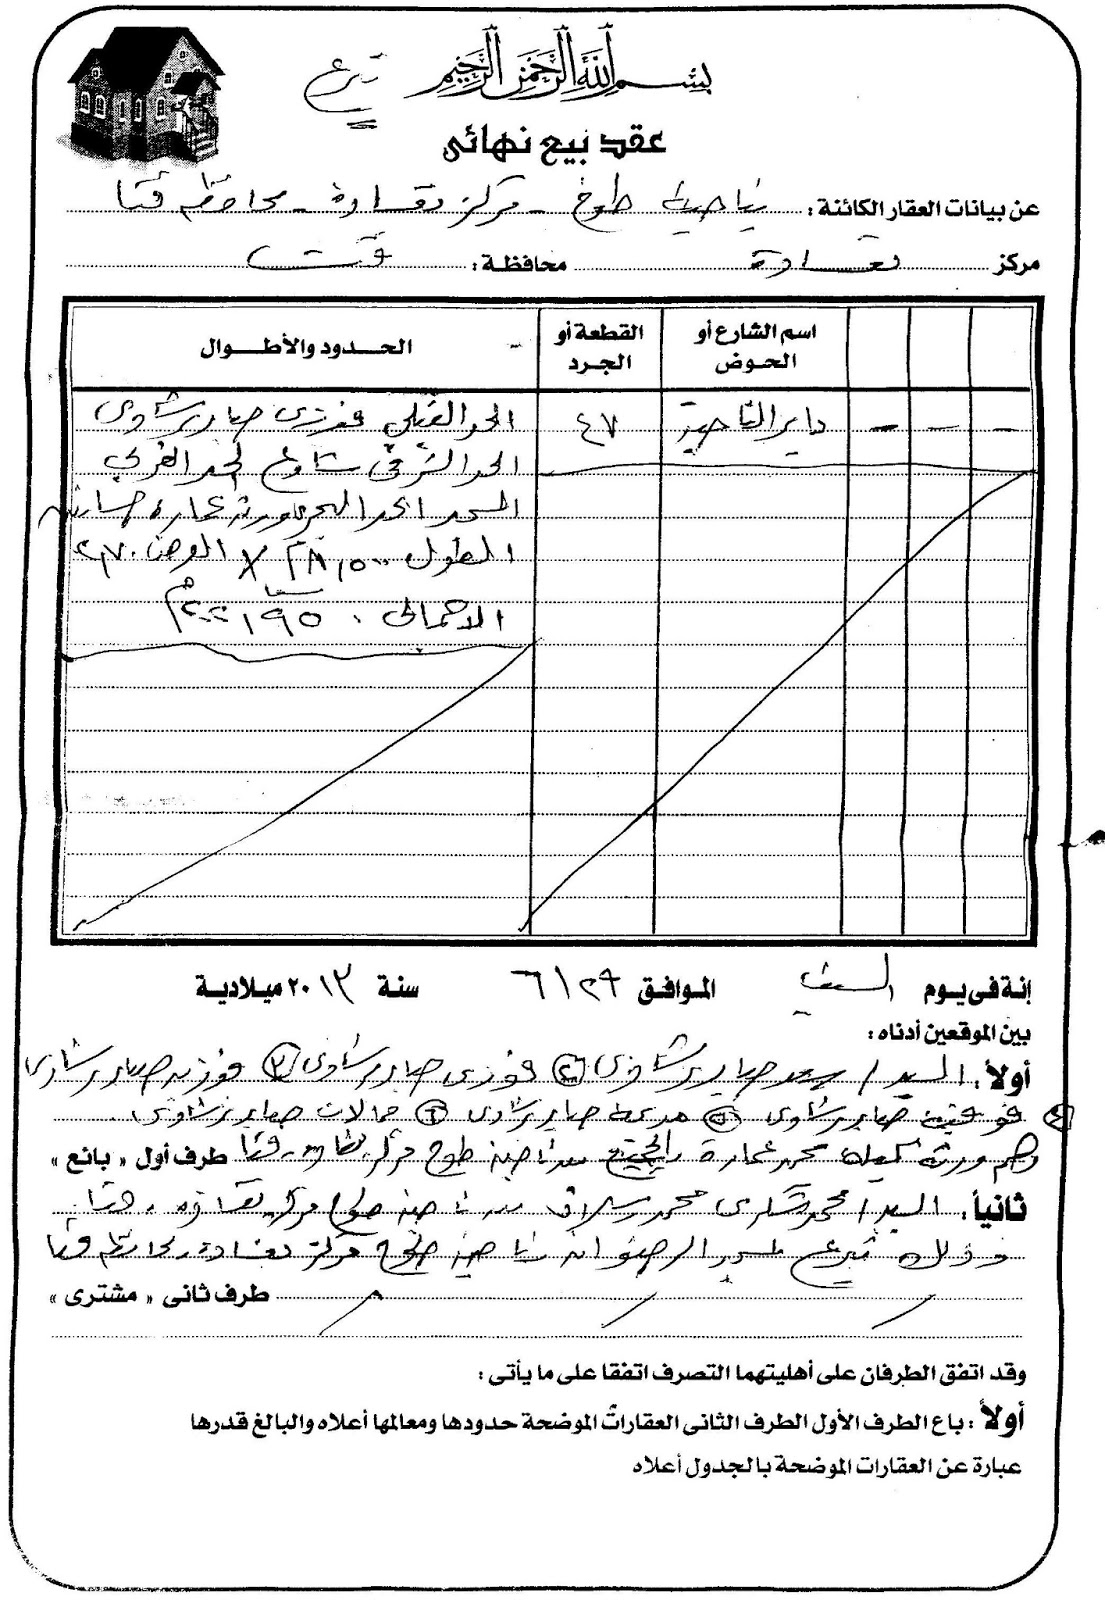 بسم الله الرحمن الرحيم
تبرع
عقد بيع نهائى
عن بيانات العقار الكائنة : بناحية طوخ - مركز نقادة - محافظة قنا
مركز نقادة محافظة : قنا
اسم الشارع أو الحوض القطعة أو الجرد الحدود والأطوال
- - - داير الناحية ٤٧ الحد القبلي فوزى صابر بشاوى
الحد الشرقى شارع الحد الغربي
المسجد الحد البحرى ورثة عمارة
الطول ٢٨,٥٠ × العرض ٧,٢٠
الاجمالى ١٩٥,٠
إنة فى يوم السبت الموافق ٦/٢٩ سنة ٢٠١٣ ميلادية
بين الموقعين أدناه :
أولاً : السيد / سعد صابر بشاوى ٢ فوزى صابر بشاوى ٣ فوزيه صابر بشاوى
٤ فوقية صابر بشاوى ٥ مديحة صابر بشاوى ٦ جمالات صابر بشاوى
وهم ورثة محمد عمارة الجميع بناحية طوخ مركز نقادة - قنا طرف أول « بائع »
ثانياً : السيد / محمد شكرى محمد من ناحية طوخ مركز نقادة - قنا
وذلك تبرع لمسجد الرضوان بناحية طوخ مركز نقادة محافظة قنا
طرف ثانى « مشترى »
وقد اتفق الطرفان على أهليتهما التصرف اتفقا على ما يأتى :
أولاً : باع الطرف الأول الطرف الثانى العقارات الموضحة حدودها ومعالمها أعلاه والبالغ قدرها
عبارة عن العقارات الموضحة بالجدول أعلاه